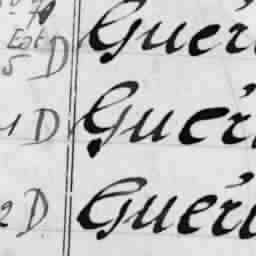 70
Est D Gueri
5
1 D Gueri
2 D Gueri